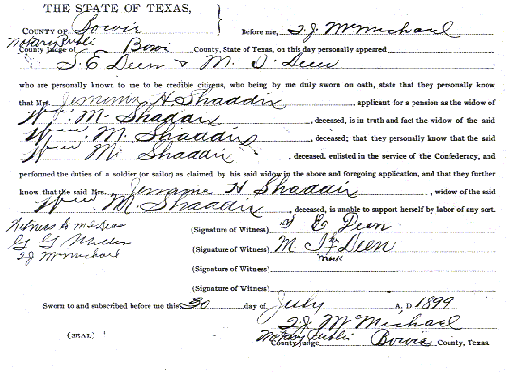 THE STATE OF TEXAS,
COUNTY OF Bowie Before me, T. J. McMichael
Notary Public
County Judge of Bowie County, State of Texas, on this day personally appeared
S. E Deen & M. D Deen
who are personally known to me to be credible citizens, who being by me duly sworn on oath, state that they personally know
that Mrs. Jemima H Shaddix applicant for a pension as the widow of
Wm M. Shaddix, deceased, is in truth and fact the widow of the said
Wm M. Shaddix, deceased; that they personally know that the said
Wm M. Shaddix, deceased, enlisted in the service of the Confederacy, and
performed the duties of a soldier (or sailor) as claimed by his said widow in the above and forgoing application, and that they further
know that the said Mrs. H Shaddix, widow of the said
Wm M Shaddix, deceased, is unable to support herself by labor of any sort.
Witness to
(Signature of Witness) S E Deen
(Signature of Witness) M Deen
T J McMichael
mark
(Signature of Witness)
(Signature of Witness)
Sworn to and subscribed before me this 30 day of July A. D 1899
T. J. McMichael
(SEAL) Notary Public
County Judge Bowie County, Texas.